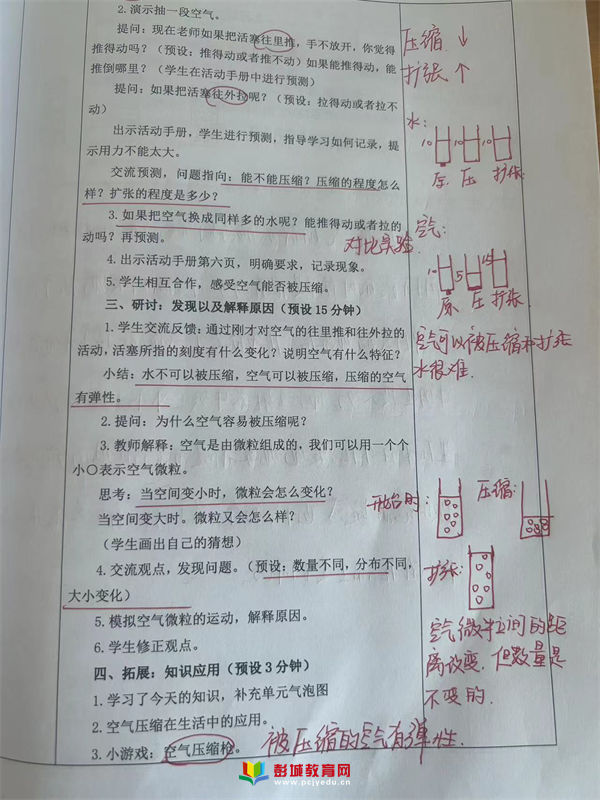 2. 演示抽一段空气。
提问：现在老师如果把活塞往里推，手不放开，你觉得
推得动吗？（预设：推得动或者推不动）如果能推得动，能
推倒哪里？（学生在活动手册中进行预测）
提问：如果把活塞往外拉呢？（预设：拉得动或者拉不
动）
出示活动手册，学生进行预测，指导学习如何记录，提
示用力不能太大。
交流预测，问题指向：能不能压缩？压缩的程度怎么
样？扩张的程度是多少？
3. 如果把空气换成同样多的水呢？能推得动或者拉的
动吗？再预测。
4. 出示活动手册第六页，明确要求，记录现象。
5. 学生相互合作，感受空气能否被压缩。
三、研讨：发现以及解释原因（预设 15 分钟）
1. 学生交流反馈：通过刚才对空气的往里推和往外拉的
活动，活塞所指的刻度有什么变化？说明空气有什么特征？
小结：水不可以被压缩，空气可以被压缩，压缩的空气
有弹性。
2. 提问：为什么空气容易被压缩呢？
3. 教师解释：空气是由微粒组成的，我们可以用一个个
小〇表示空气微粒。
思考：当空间变小时，微粒会怎么变化？
当空间变大时。微粒又会怎么样？
（学生画出自己的猜想）
4. 交流观点，发现问题。（预设：数量不同，分布不同，
大小变化）
5. 模拟空气微粒的运动，解释原因。
6. 学生修正观点。
四、拓展：知识应用（预设 3 分钟）
1. 学习了今天的知识，补充单元气泡图
2. 空气压缩在生活中的应用。
3. 小游戏：空气压缩枪。
被压缩的空气有弹性.
压缩 ↓
扩张 ↑
水：
10 10 10
原 压 扩张
对比实验
空气：
10 5 15
原 压 扩张
空气可以被压缩和扩张
水很难.
开始时： 压缩：
扩张：
空气微粒间的距
离改变. 但数量是
不变的.
彭城教育网
www.pcjyedu.cn